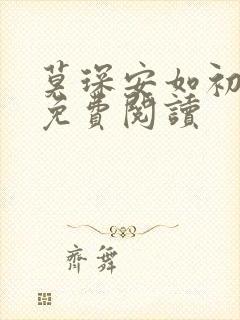 莫琛安如初
免費閱讀
齊舞